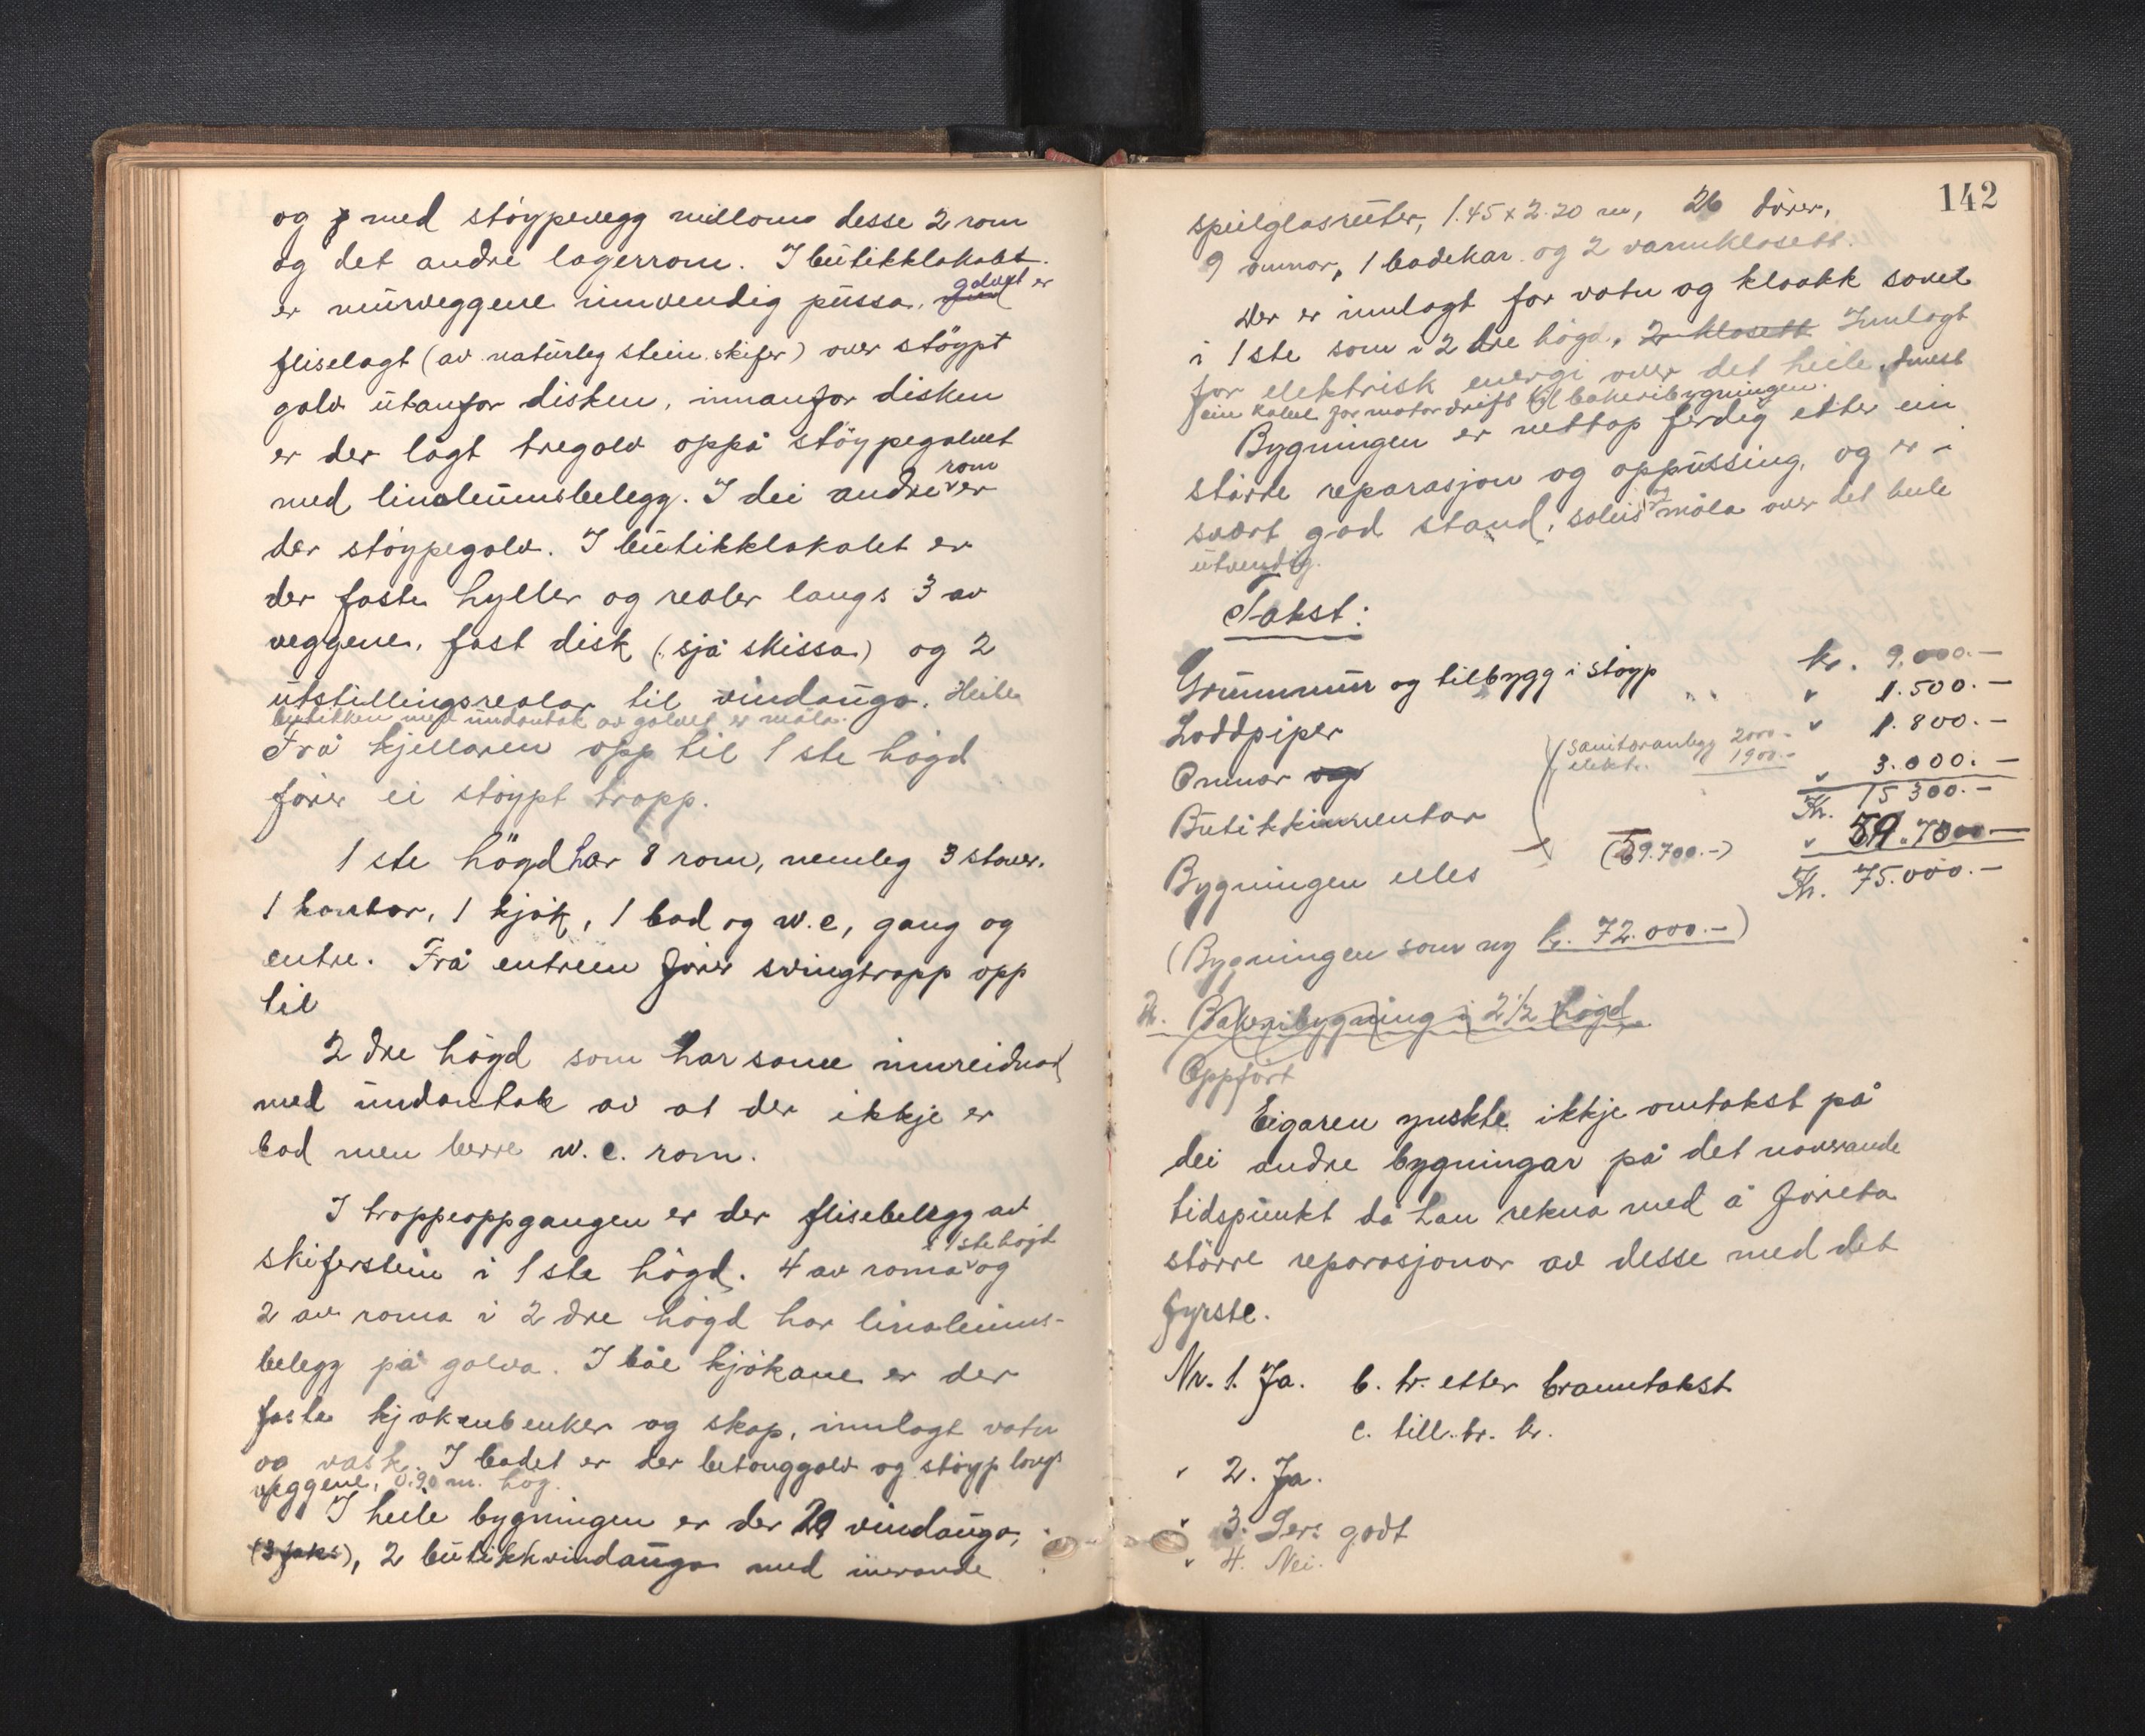 og med støypevegg millom desse 2 rom
og det andre lagerrom. I butikklokalet
er murveggene innvendig pussa, golvet er
fliselagt (av naturleg stein skifer) over støypt
golv utanfor disken, innanfor disken
er der lagt tregolv oppå støypegolvet
med linoleumsbelegg. I dei andre rom er
der støypegolv. I butikklokalet er
der faste hyller og reoler langs 3 av
veggene, fast disk (sjå skissa) og 2
utstillingsreolar til vindauga. Heile
butikken med undantak av golvet er måla.
Frå kjellaren opp til 1ste høgd
fører ei støypt tropp.
1ste høgd har 8 rom, nemleg 3 stover.
1 kontor, 1 kjøk, 1 bad og w.c, gang og
entre. Frå entreen fører svingtropp opp
til
2dre høgd som har same innreidnad
med undantak av at der ikkje er
bad men berre w.c. rom.
I troppeoppgangen er der flisebelegg av
skiferstein i 1ste høgd. 4 av roma i 1ste høgd og
2 av roma i 2dre høgd har linoleums-
belegg på golva. I båe kjøkane er der
faste kjøkenbenker og skap, innlagt vatn
og vask. I badet er der betonggolv og støyp langs
veggene, 0.90 m. høg.
I heile bygningen er der 29 vindauga,
(3 faks), 2 butikkvindauga med
142
speilglasruter, 1.45 x 2.20 m, 26 dører,
9 omnar, 1 badekar og 2 vannklosett.
Der er innlagt for vatn og kloakk sovel
i 1ste som i 2dre høgd, 2 klosett Innlagt
for elektrisk energi over det heile, dnest
ein kabel for motordrift til bakeribygningen.
Bygningen er nettop ferdig etter ein
større reparasjon og oppussing, og er i
svært god stand, soleis og måla over det heile
utvendig.
Takst:
Grunnmur og tilbygg i støyp kr. 9.000.-
Loddpiper " 1.500.-
Omnar og " 1.800.-
(sanitæranlegg 2000.-
elektr. " 1900.-
Butikkinventar " 3.000.-
Kr. 15 300.-
Bygningen elles (59.700.-) " 59.700-
Kr. 75.000.-
(Bygningen som ny kr. 72.000.-)
2. Bakeribygning i 2 1/2 høgd
Oppført
Eigaren ynskte ikkje omtakst på
dei andre bygningar på det noverande
tidspunkt då han rekna med å føreta
større reparasjonar av desse med det
fyrste.
Nr. 1. Ja. b. tr. etter branntakst
c. till. tr. kr.
" 2. Ja.
" 3. Sers godt
" 4. Nei.